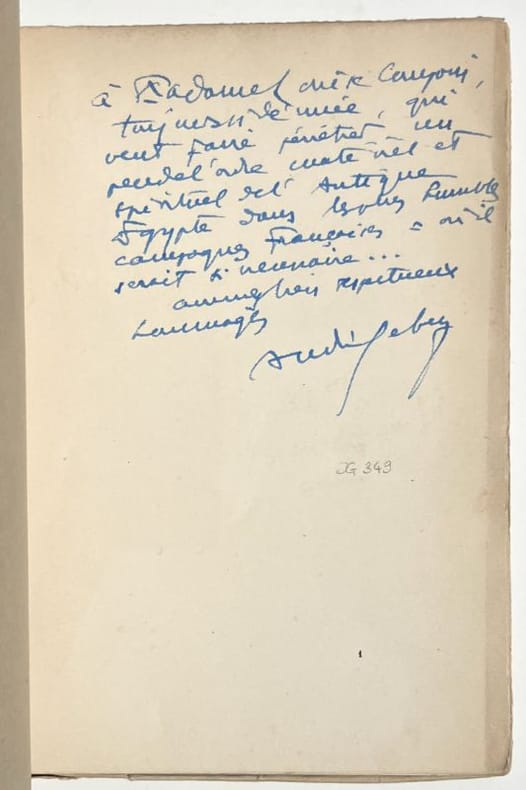 à Madame
toujours si dévouée, qui
veut faire pénétrer un
peu de l'ordre matériel et
spirituel de l'Antique
Egypte dans les plus humbles
campagnes Françaises = où il
serait si nécessaire...
avec mes bien respectueux
hommages
André Lebey
JG 349
1